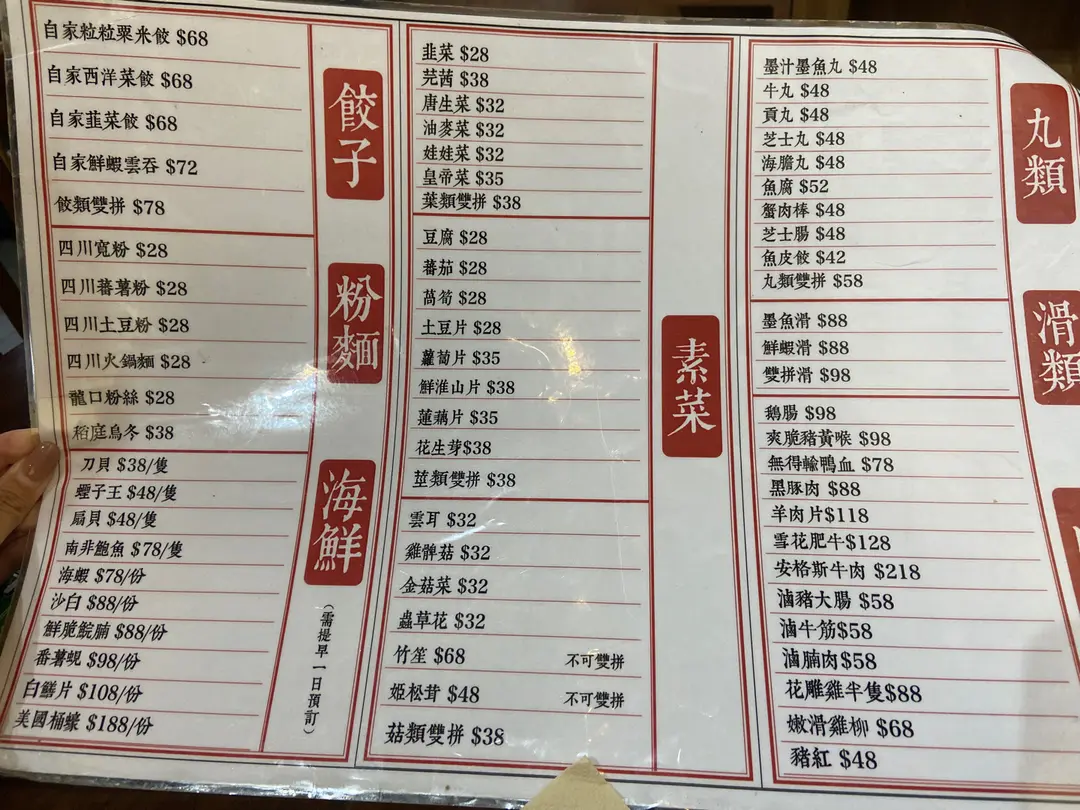 餃子
自家粒粒粟米餃 $68
自家西洋菜餃 $68
自家韮菜餃 $68
自家鮮蝦雲吞 $72
餃類雙拼 $78
粉麵
四川寬粉 $28
四川蕃薯粉 $28
四川土豆粉 $28
四川火鍋麵 $28
龍口粉絲 $28
稻庭烏冬 $38
海鮮
(需提早一日預訂)
刀貝 $38/隻
蟶子王 $48/隻
扇貝 $48/隻
南非鮑魚 $78/隻
海蝦 $78/份
沙白 $88/份
鮮脆鯇腩 $88/份
番薯蜆 $98/份
白鱔片 $108/份
美國桶蠔 $188/份
素菜
韭菜 $28
芫茜 $38
唐生菜 $32
油麥菜 $32
娃娃菜 $32
皇帝菜 $35
葉類雙拼 $38
豆腐 $28
蕃茄 $28
萵筍 $28
土豆片 $28
蘿蔔片 $35
鮮淮山片 $38
蓮藕片 $35
花生芽$38
莖類雙拼 $38
雲耳 $32
雞髀菇 $32
金菇菜 $32
蟲草花 $32
竹笙 $68 不可雙拼
姬松茸 $48 不可雙拼
菇類雙拼 $38
丸類
墨汁墨魚丸 $48
牛丸 $48
貢丸 $48
芝士丸 $48
海膽丸 $48
魚腐 $52
蟹肉棒 $48
芝士腸 $48
魚皮餃 $42
丸類雙拼 $58
滑類
墨魚滑 $88
鮮蝦滑 $88
雙拼滑 $98
鵝腸 $98
爽脆豬黃喉 $98
無得輸鴨血 $78
黑豚肉 $88
羊肉片$118
雪花肥牛$128
安格斯牛肉 $218
滷豬大腸 $58
滷牛筋$58
滷腩肉$58
花雕雞半隻$88
嫩滑雞柳 $68
豬紅 $48